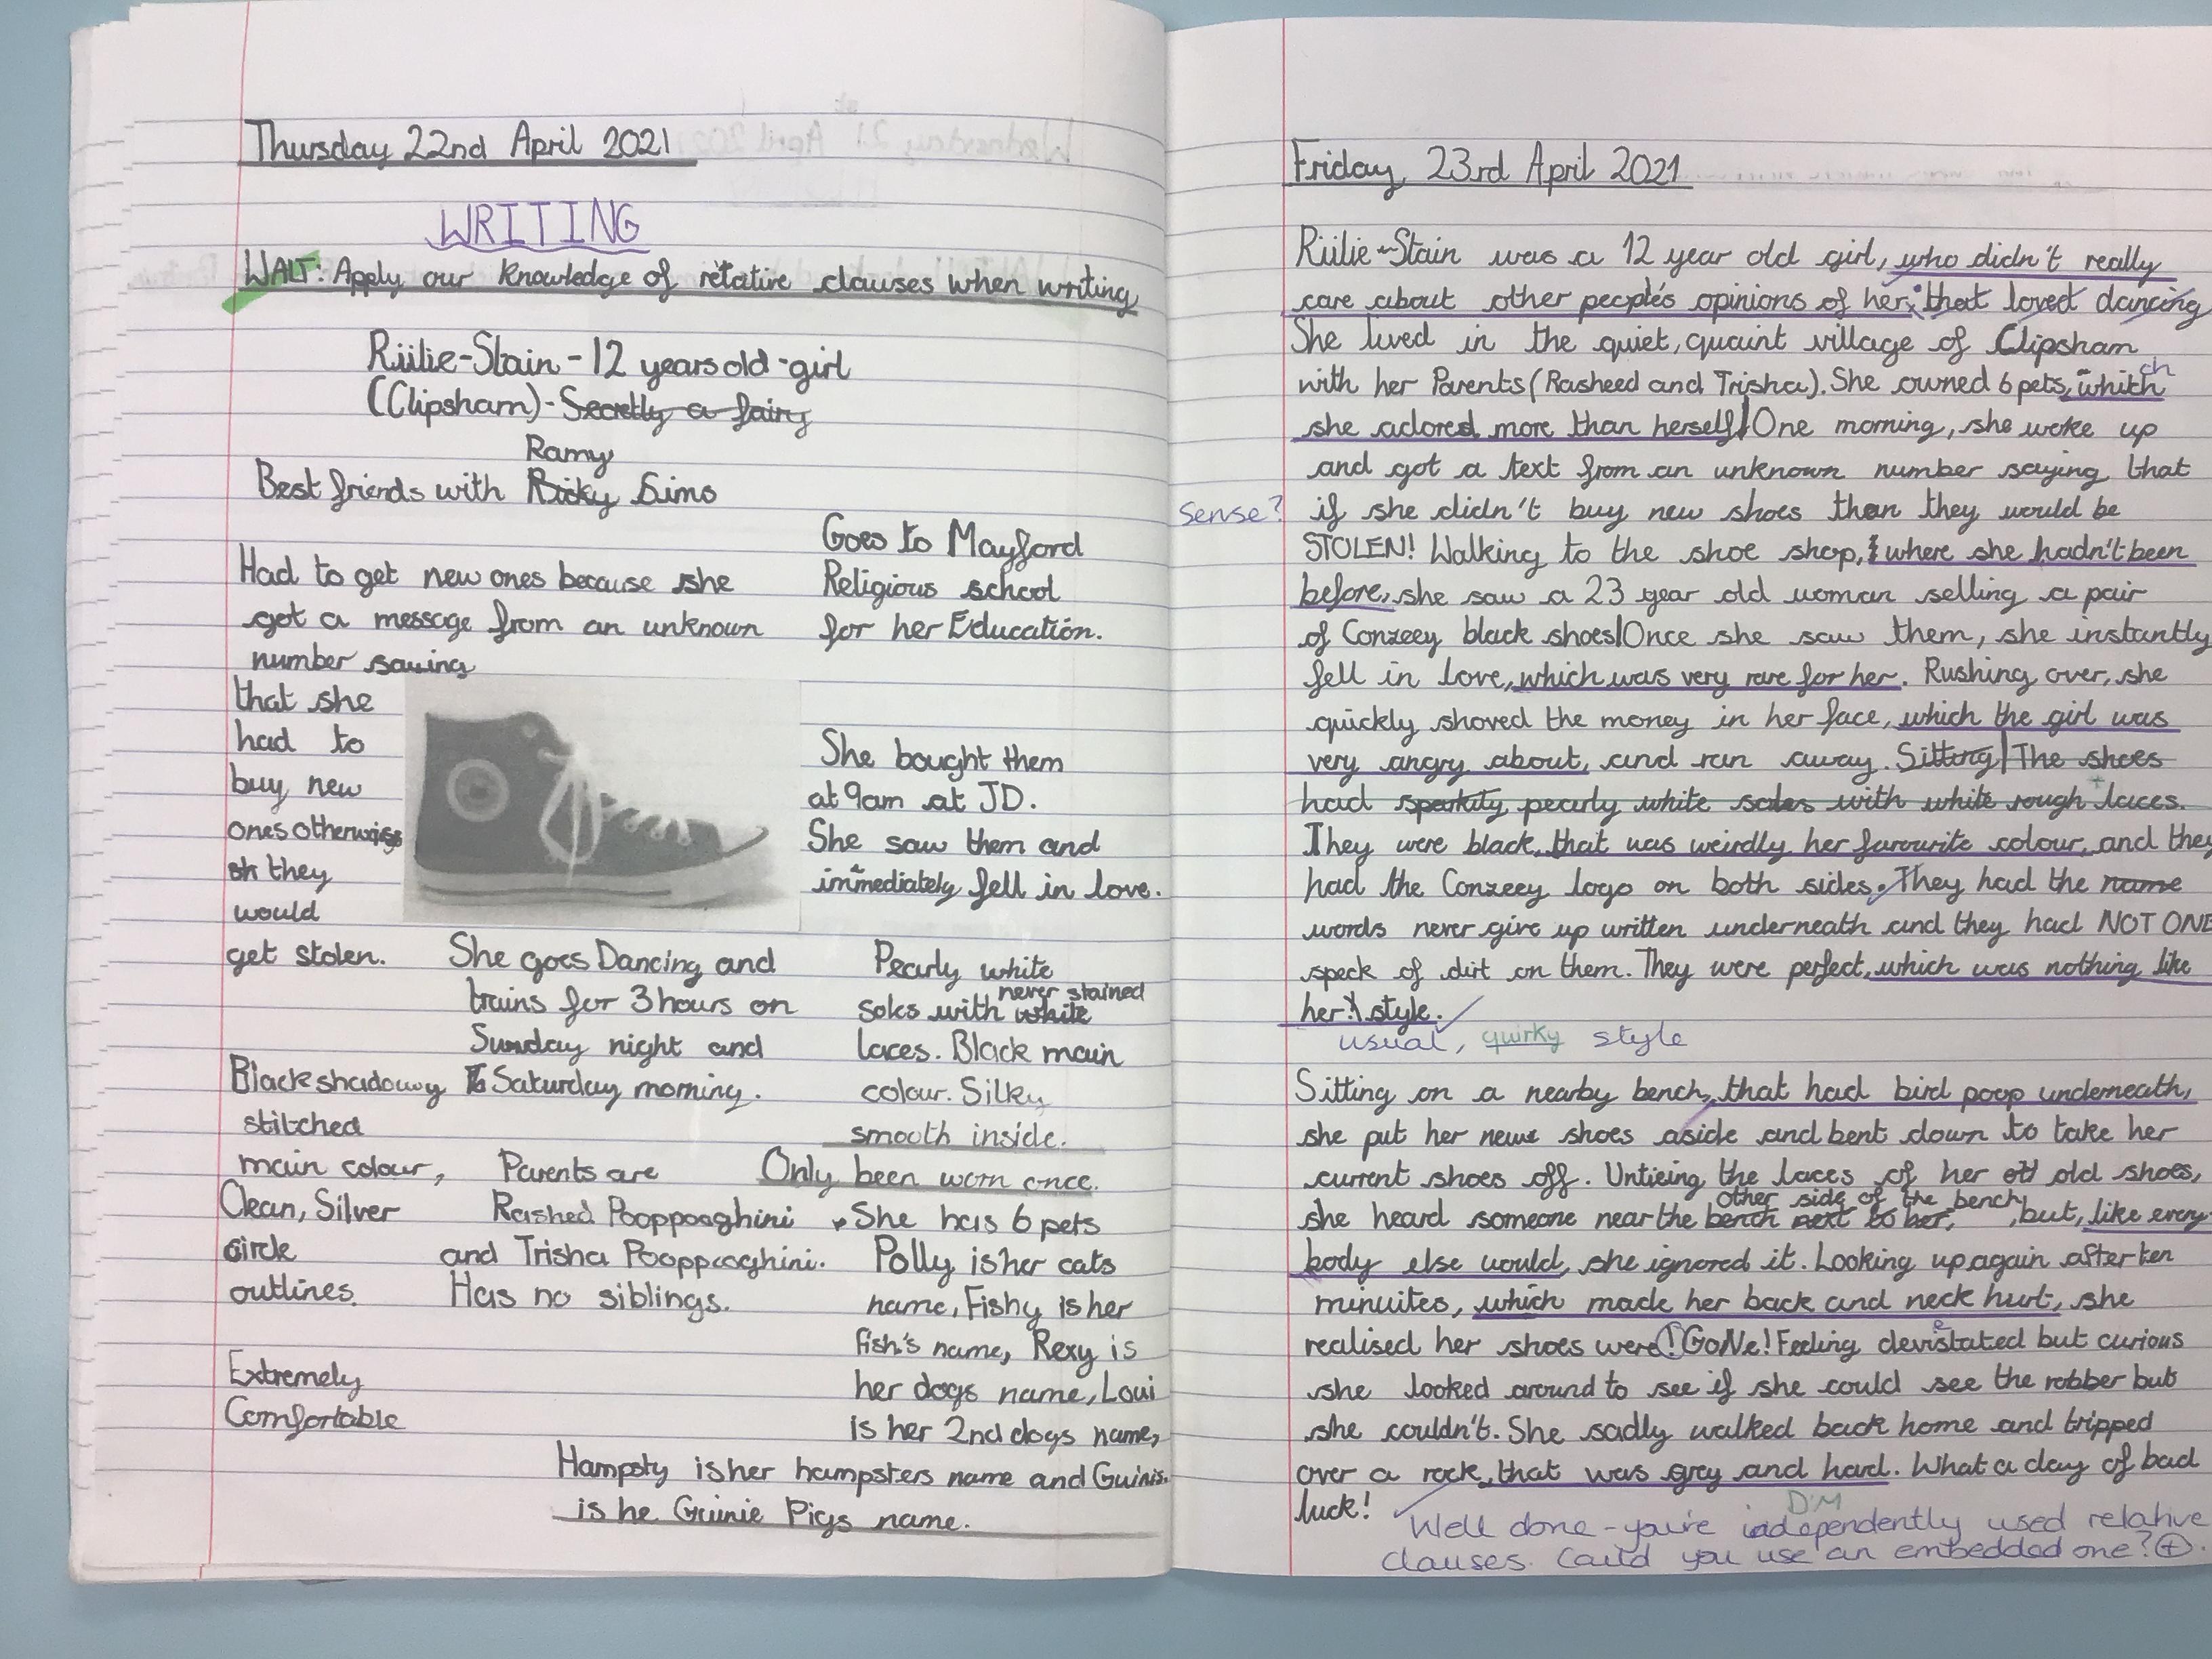 Thursday 22nd April 2021
WRITING
WALT: Apply our knowledge of relative clauses when writing
Riilie-Stain - 12 years old - girl
(Clipsham) - Secretly a fairy
Ramy
Best friends with Ricky Simo
Goes to Mayford
Religious school
for her Education.
Had to get new ones because she
got a message from an unknown
number saying
that she
had to
buy new
ones otherwise
they
would
get stolen.
She bought them
at 9am at JD.
She saw them and
immediately fell in love.
She goes Dancing and
trains for 3 hours on
Sunday night and
Saturday morning.
Pearly white
never stained
soles with white
laces. Black main
colour. Silky
smooth inside.
Only been worn once.
Black shadowy
stitched
main colour,
Clean, Silver
circle
outlines.
Extremely
Comfortable
Parents are
Rashed Pooppooghini
and Trisha Pooppooghini.
Has no siblings.
She has 6 pets
Polly is her cats
name, Fishy is her
fish's name, Rexy is
her dogs name, Loui
is her 2nd dogs name,
Hampsty is her hampsters name and Guinis
is he Guinie Pigs name.
Friday 23rd April 2021
Riilie-Stain was a 12 year old girl, who didn't really
care about other people's opinions of her, that loved dancing
She lived in the quiet, quaint village of Clipsham
ch
with her Parents (Rasheed and Trisha). She owned 6 pets, which
she adored more than herself One morning, she woke up
and got a text from an unknown number saying that
sense? if she didn't buy new shoes then they would be
STOLEN! Walking to the shoe shop, where she hadn't been
before, she saw a 23 year old woman selling a pair
of Conzeey black shoes Once she saw them, she instantly
fell in love, which was very rare for her. Rushing over, she
quickly shoved the money in her face, which the girl was
very angry about, and ran away. Sitting The shoes
had sparkily pearly white soles with white rough laces.
They were black, that was weirdly her favourite colour, and they
had the Conzeey logo on both sides. They had the name
words never give up written underneath and they had NOT ONE
speck of dirt on them. They were perfect, which was nothing like
her style.
usual, quirky style
Sitting on a nearby bench, that had bird poop underneath,
she put her new shoes aside and bent down to take her
current shoes off. Untieing the laces of her old shoes,
other side of the bench
she heard someone near the bench next to her, but, like every
body else would, she ignored it. Looking up again after ten
minuites, which made her back and neck hurt, she
realised her shoes were! GoNe! Feeling devistated but curious
she looked around to see if she could see the robber but
she couldn't. She sadly walked back home and tripped
over a rock, that was grey and hard. What a day of bad
luck!
DM
Well done - you're independently used relative
clauses. Could you use an embedded one?